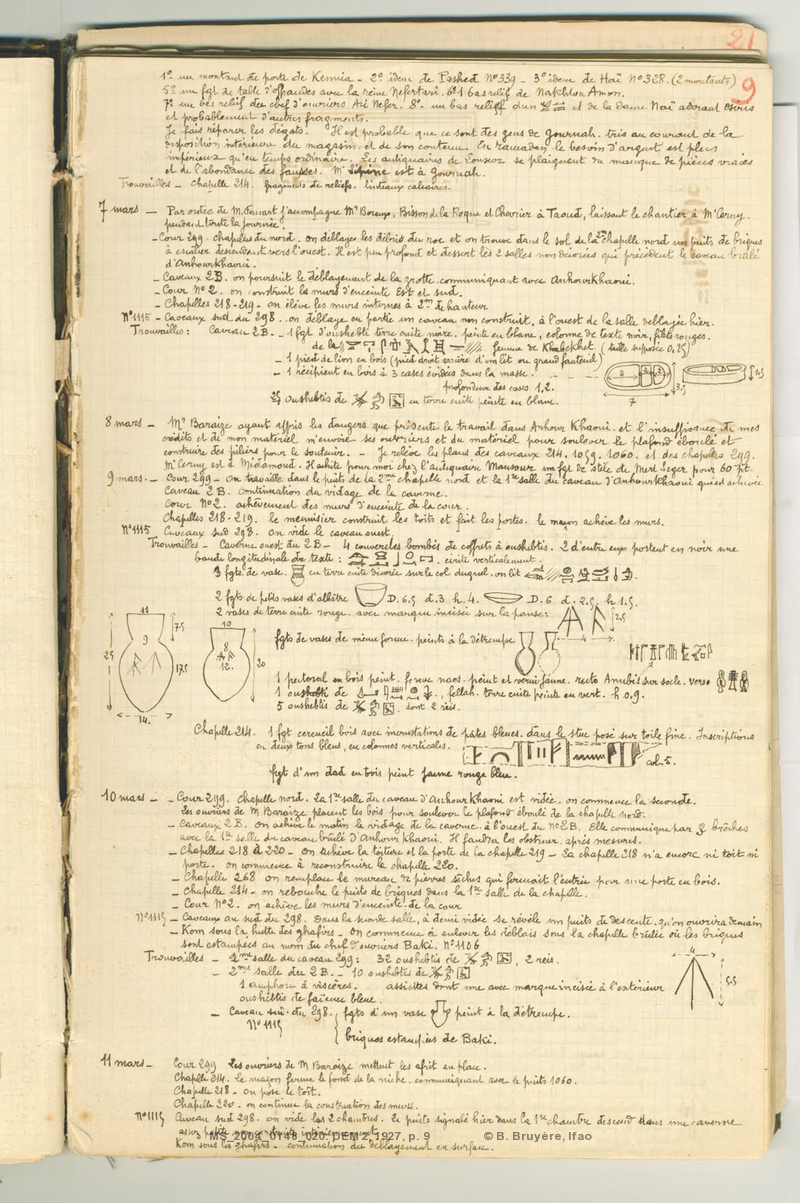 21
9
1° un montant de porte de Kennia - 2° idem de Pashed N°339 - 3° idem de Haï N°328. (2 montants)
5° un fgt de table d'offrandes avec la reine Nefertari. 6° 1 bas relief de Nakhton Amon.
7° un bas relief du chef d'ouvriers Ari Nefer. 8° un bas relief d'un et de la Dame Naï adorant Osiris
et probablement d'autres fragments.
Je fais réparer les dégats. Il est probable que ce sont des gens de Gournah. très au courant de la
disposition intérieure du magasin et de son contenu. En ramadan le besoin d'argent est plus
impérieux qu'en temps ordinaire. Les antiquaires de Louxor se plaignent du manque de pièces vraies
et de l'abondance des fausses. Mr est à Gournah.
Trouvailles - Chapelle 214. fragments de reliefs. linteaux calcaires.
7 mars - Par ordre de M. Foucart j'accompagne Mrs Boreux, Bisson de la Roque et Chevrier à Taoud, laissant le chantier à Mr Cerny.
pendant toute la journée.
- Cour 299. chapelles du nord. on déblaye les débris du roc et on trouve dans le sol de la 2me chapelle nord un puits de briques
à escalier descendant vers l'ouest. Il est peu profond et dessert les 2 salles non décorées qui précèdent le caveau brûlé
d'Anhour Khaoui.
- Caveaux 2B. on poursuit le déblayement de la grotte communiquant avec Anhour Khaoui.
- Cour N°2. on construit les murs d'enceinte Est et sud.
- Chapelles 218-219 - on élève les murs internes à 2m de hauteur
N°1115 - Caveaux sud du 298. on déblaye en partie un caveau non construit, à l'ouest de la salle déblayée hier.
Trouvailles : Caveau 2B. - 1 fgt d'oushebti terre cuite noire. peinte en blanc, colonne de texte noir, filets rouges.
de la femme de Khabekhet (taille supposée 0,25)
- 1 pied de lion en bois (pied droit arrière d'un lit ou grand fauteuil)
- 1 récipient en bois à 3 cases évidées dans la masse.
profondeur des cases 1,2.
25 oushebtis de en terre cuite peinte en blanc.
3 2 3
3.5
7
1.5
8 mars - Mr Baraize ayant appris les dangers que présente le travail dans Anhour Khaoui et l'insuffisance de mes
crédits et de mon matériel m'envoie ses ouvriers et du matériel pour soulever le plafond éboulé et
construire des piliers pour le soutenir. - Je relève les plans des caveaux 214. 1059. 1060. et des chapelles 299.
Mr Cerny est à Médamoud. Il achète pour moi chez l'antiquaire Mansour un fgt de stèle de Mert Seger pour 60 Pt.
9 mars. - Cour 299 - on travaille dans le puits de la 2me chapelle nord et la 1re salle du caveau d'Anhour Khaoui qui est achevée
Caveau 2B. Continuation du vidage de la caverne.
Cour N°2. achèvement des murs d'enceinte de la cour.
Chapelles 218-219. le menuisier construit les toits et fait les portes. le maçon achève les murs.
N°1115 Caveaux sud 298. on vide le caveau ouest.
Trouvailles - Caverne ouest du 2B - 4 couvercles bombés de coffrets à oushebtis. 2 d'entre eux portent en noir une
bande longitudinale de texte : écrite verticalement.
3 fgts de vase. en terre cuite décorée sur le col duquel on lit
2 fgts de petits vases d'albâtre D. 6.5 d. 3. h. 4. D. 6 d. 2.5. h 1.5.
2 vases de terre cuite rouge. avec marque incisée sur la panse.
2.5
4
11
9
7.5
25
17.5
14.
10
8
12.
20
fgts de vases de même forme. peints à la détrempe
1 pectoral en bois peint. forme naos. peint et verni jaune. recto Anubis sur socle. verso
1 oushebti de , fellah. terre cuite peinte en vert. h 0.9.
5 oushebtis de dont 2 reis.
Chapelle 214. 1 fgt cercueil bois avec incrustations de pâtes bleues. dans le stuc posé sur toile fine. Inscriptions
en deux tons bleus, en colonnes verticales. col. 5.
fgt d'un dad en bois peint jaune rouge bleu.
10 mars - - Cour 299. chapelle nord. la 1re salle du caveau d'Anhour Khaoui est vidée. on commence la seconde.
les ouvriers de M Baraize placent les bois pour soulever le plafond éboulé de la chapelle nord.
- Caveaux 2B. on achève le matin le vidage de la caverne à l'ouest du N°2B. Elle communique par 3 brèches
avec la 1re salle du caveau brûlé d'Anhour Khaoui. Il faudra les obstruer. après mesures.
- Chapelles 218 à 220 - on achève la toiture et la porte de la chapelle 219 - La chapelle 218 n'a encore ni toit ni
porte. on commence à reconstruire la chapelle 220.
- Chapelle 268 on remplace le mureau de pierres sèches qui formait l'entrée par une porte en bois.
- Chapelle 214 - on rebouche le puits de briques dans la 1re salle de la chapelle.
- Cour N°2. on achève les murs d'enceinte de la cour
N°1115 - Caveaux au sud du 298. Dans la seconde salle, à demi vidée se révèle un puits de descente. qu'on ouvrira demain
- Kom sous la hutte des ghafirs - on commence à enlever les déblais sous la chapelle brûlée où les briques
sont estampées au nom du chef d'ouvriers Baki. N°1106
Trouvailles - 2me salle du caveau 299 : 32 oushebtis de , 2 reis.
- 2me salle du 2B. - 10 oushebtis de
1 amphore à viscères. assiettes dont une avec marque incisée à l'extérieur
oushebtis de faïence bleue.
- Caveau sud du 298. fgts d'un vase peint à la détrempe.
N°1115
briques estampées de Baki.
4
5.5
11 mars - Cour 299 les ouvriers de M Baraize mettent les afrit en place.
Chapelle 214. le maçon ferme le fond de la niche. communiquant avec le puits 1060.
Chapelle 218 - on pose le toit.
Chapelle 220. on continue la construction des murs.
N°1115 Caveau sud 298. on vide les 2 chambres. Le puits signalé hier dans la 1re chambre descend dans une caverne
assez
Kom sous les ghafirs - continuation du déblayement en surface.
MS_2004_0148_020. DEM 2, 1927, p. 9 © B. Bruyère, Ifao